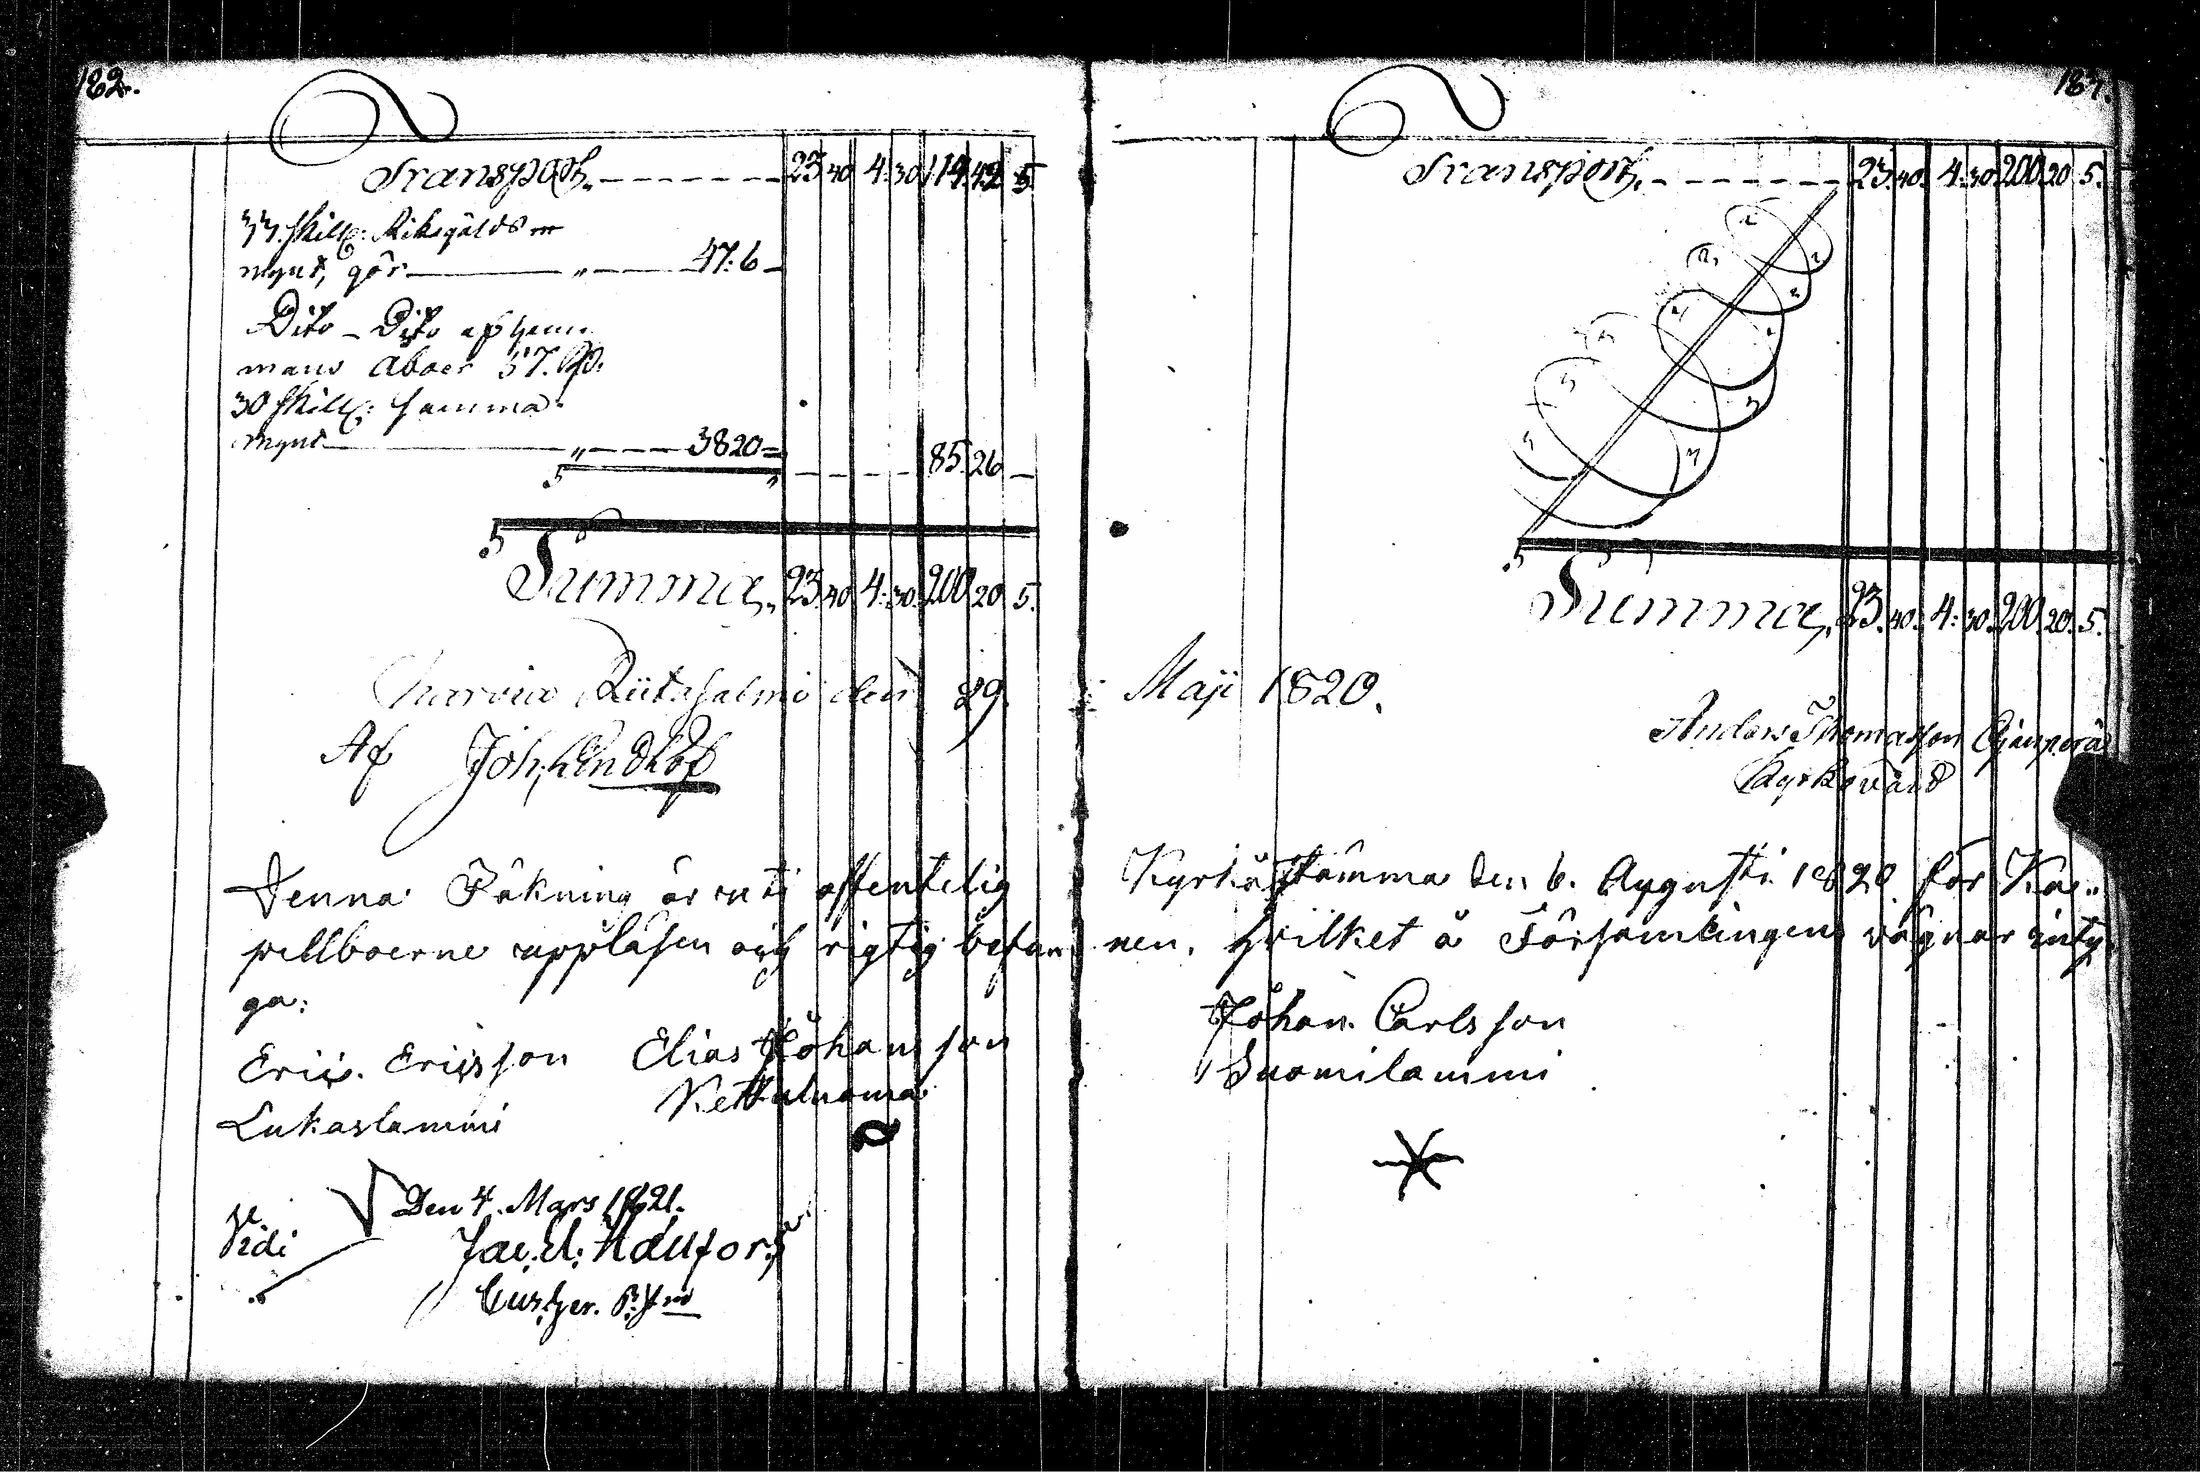 182.
Transport. 23. 40 4: 30 114. 42 5
33. skill: Riksgälds
mynt, gör " 47: 6
Dito Dito af hem
mans Åboer 37. Rd.
30 skill: samma
mynt " 38 20 =
85. 26
Summa, 23. 40 4: 30. 200 20 5.
den 29.
Af Joh: Lindlöf
Denna Räkning är uti offentelig
pellboerne uppläsen och rigtig befun
ga:
Eric. Ericsson Elias Johansson
Lukaslammi Kettuluoma
Den 4. Mars 1821.
Vidi
Jac. U. Hällfors
183.
Transport. 23. 40. 4: 30. 200 20 5.
Summa, 23. 40. 4: 30. 200. 20. 5.
Maji 1820.
Anders Thomasson
Kyrkovärd
Kyrkostämma den 6. Augusti 1820 för Ka
nen, hvilket å Församlingens vägnar inty
Johan Carlsson
Suomilammi